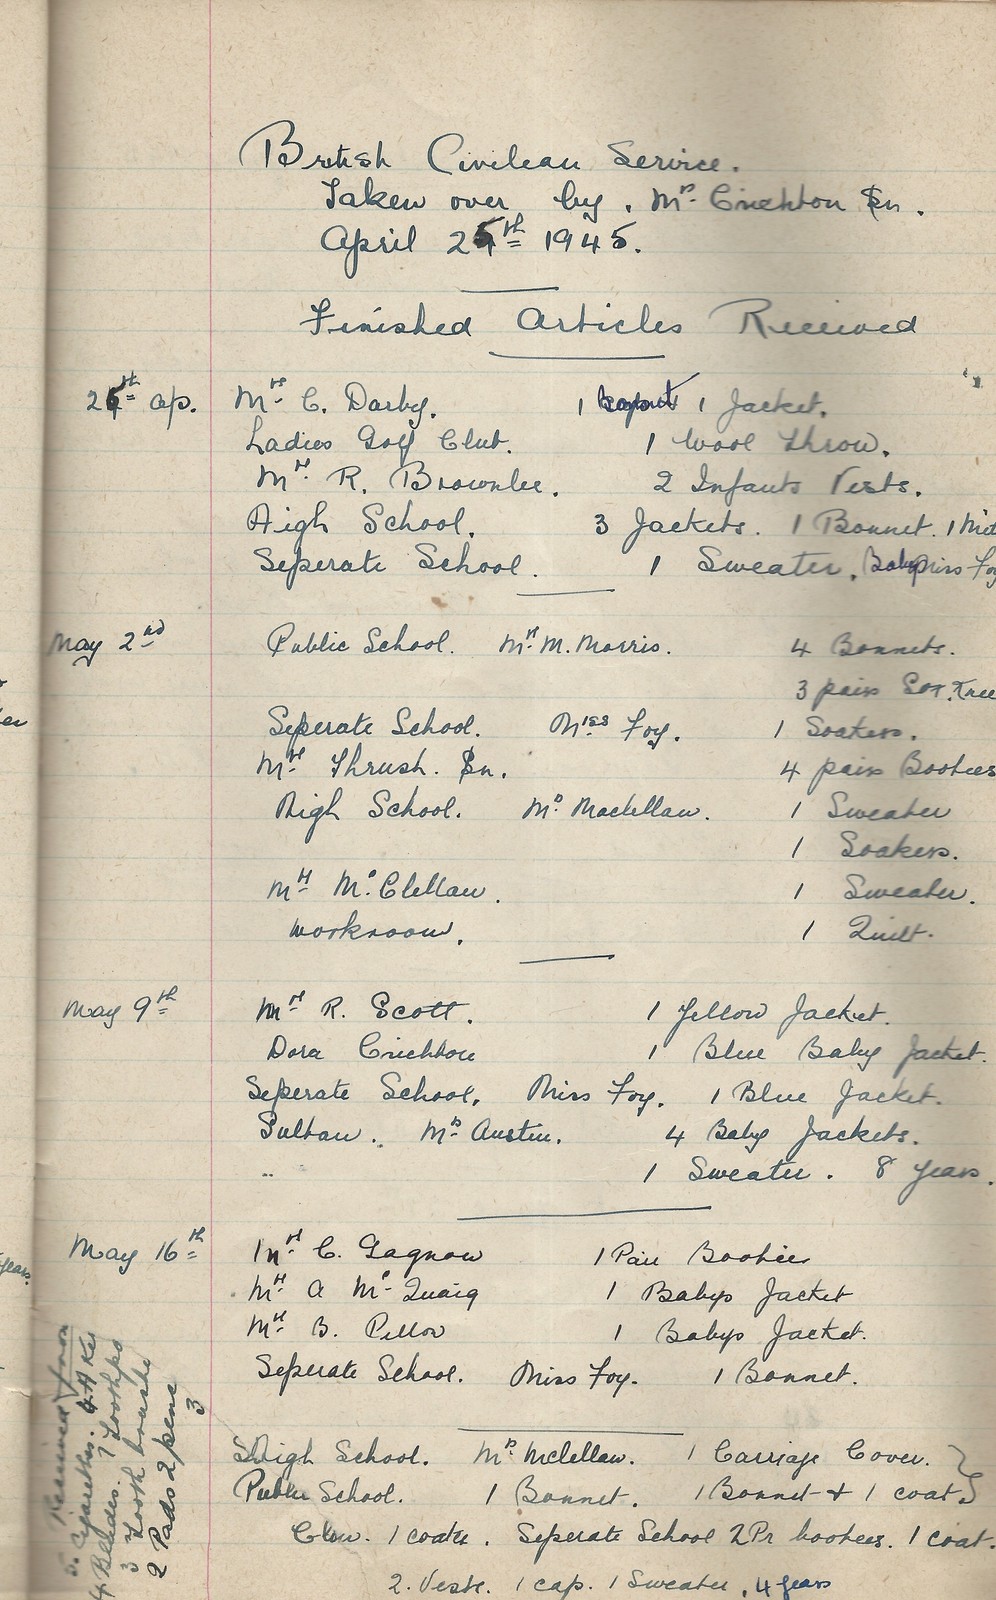 British Civilean Service.
Taken over by. Mrs. Crichton Sn.
April 25th 1945.
Finished Articles Received
25th Ap. Mrs. C. Darby. 1 1 Jacket.
Ladies Golf Club. 1 Wool Throw.
Mrs. R. Brownlee. 2 Infants Vests.
High School. 3 Jackets. 1 Bonnet. 1 Mit
Seperate School. 1 Sweater. Baby Miss Foy
May 2nd Public School. Mrs. M. Morris. 4 Bonnets.
3 pairs Sox. Knee
Seperate School. Miss Foy. 1 Soakers.
Mrs. Thrush. Sn. 4 pairs Bootees
High School. Mc Maclellan. 1 Sweater
1 Soakers.
Mrs McClellan. 1 Sweater.
Workroom. 1 Quilt.
May 9th Mrs R. Scott. 1 Yellow Jacket.
Dora Crichton 1 Blue Baby Jacket.
Seperate School. Miss Foy. 1 Blue Jacket.
Sultan. Mrs. Austen. 4 Baby Jackets.
" 1 Sweater. 8 years.
May 16th Mrs C. Gagnon 1 Pair Bootees
Mrs A McQuaig 1 Babys Jacket
Mrs B. Pellow 1 Babys Jacket.
Seperate School. Miss Foy. 1 Bonnet.
High School. Mrs McLellan. 1 Carriage Cover.
Public School. 1 Bonnet. 1 Bonnet + 1 coat.
1 coat. Seperate School 2 Pr bootees. 1 coat.
2 Vests. 1 cap. 1 Sweater. 4 years
Received from
5 Cigarettes.
4 Blades. 7 Toothpa
3 Tooth brushe
2 Pads 2 pens
3
years.